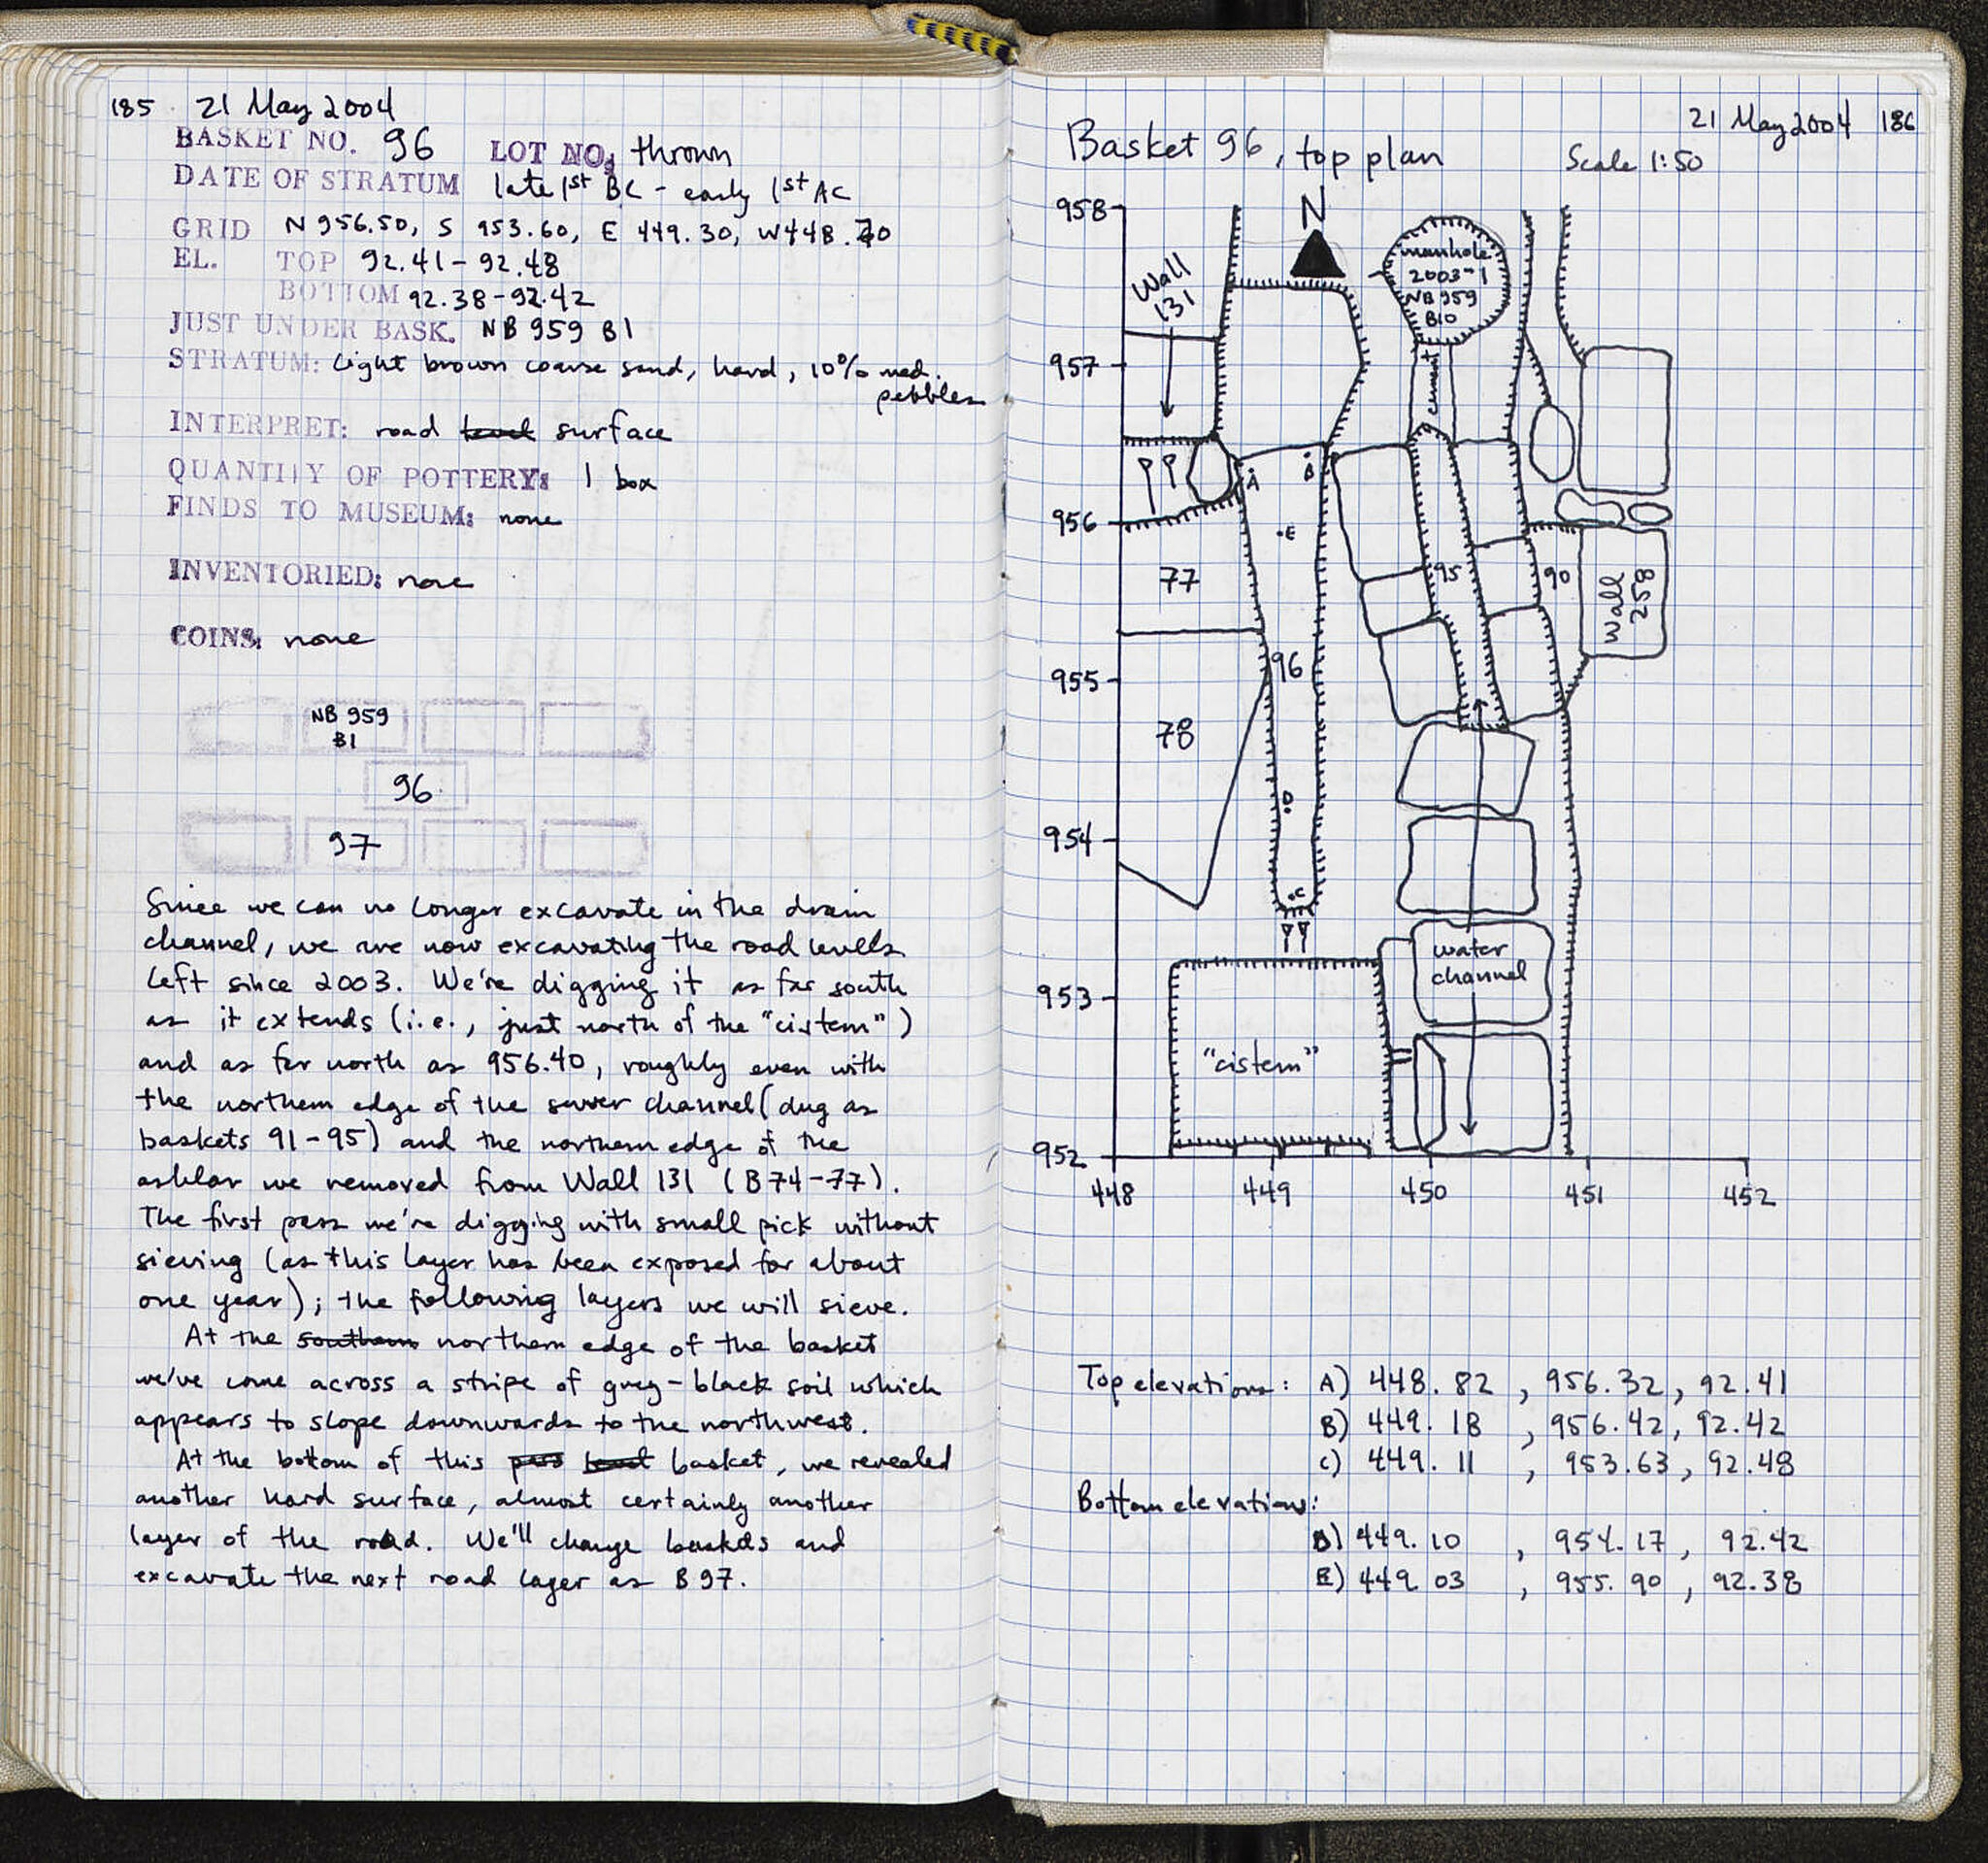 185 21 May 2004
BASKET NO. 96 LOT NO: thrown
DATE OF STRATUM late 1st BC - early 1st AC
GRID N 956.50, S 953.60, E 449.30, W 448.70
EL. TOP 92.41-92.48
BOTTOM 92.38-92.42
JUST UNDER BASK. NB 959 B1
STRATUM: light brown coarse sand, hard, 10% med.
pebbles
INTERPRET: road level surface
QUANTITY OF POTTERY: 1 box
FINDS TO MUSEUM: none
INVENTORIED: none
COINS: none
NB 959
B1
96
97
Since we can no longer excavate in the drain
channel, we are now excavating the road levels
left since 2003. We're digging it as far south
as it extends (i.e., just north of the "cistern")
and as far north as 956.40, roughly even with
the northern edge of the sewer channel (dug as
baskets 91-95) and the northern edge of the
ashlar we removed from Wall 131 (B74-77).
The first pass we're digging with small pick without
sieving (as this layer has been exposed for about
one year); the following layers we will sieve.
At the southern northern edge of the basket
we've come across a stripe of grey-black soil which
appears to slope downwards to the northwest.
At the bottom of this pass level basket, we revealed
another hard surface, almost certainly another
layer of the road. We'll change baskets and
excavate the next road layer as B97.
21 May 2004 186
Basket 96, top plan
Scale 1:50
958
N
Wall
131
manhole
2003-1
NB 959
B10
957
cement
A
B
956
E
77
95
90
Wall
258
96
955
78
D
954
C
water
channel
953
"cistern"
952
448 449 450 451 452
Top elevations: A) 448.82, 956.32, 92.41
B) 449.18, 956.42, 92.42
C) 449.11, 953.63, 92.48
Bottom elevations:
D) 449.10, 954.17, 92.42
E) 449.03, 955.90, 92.38